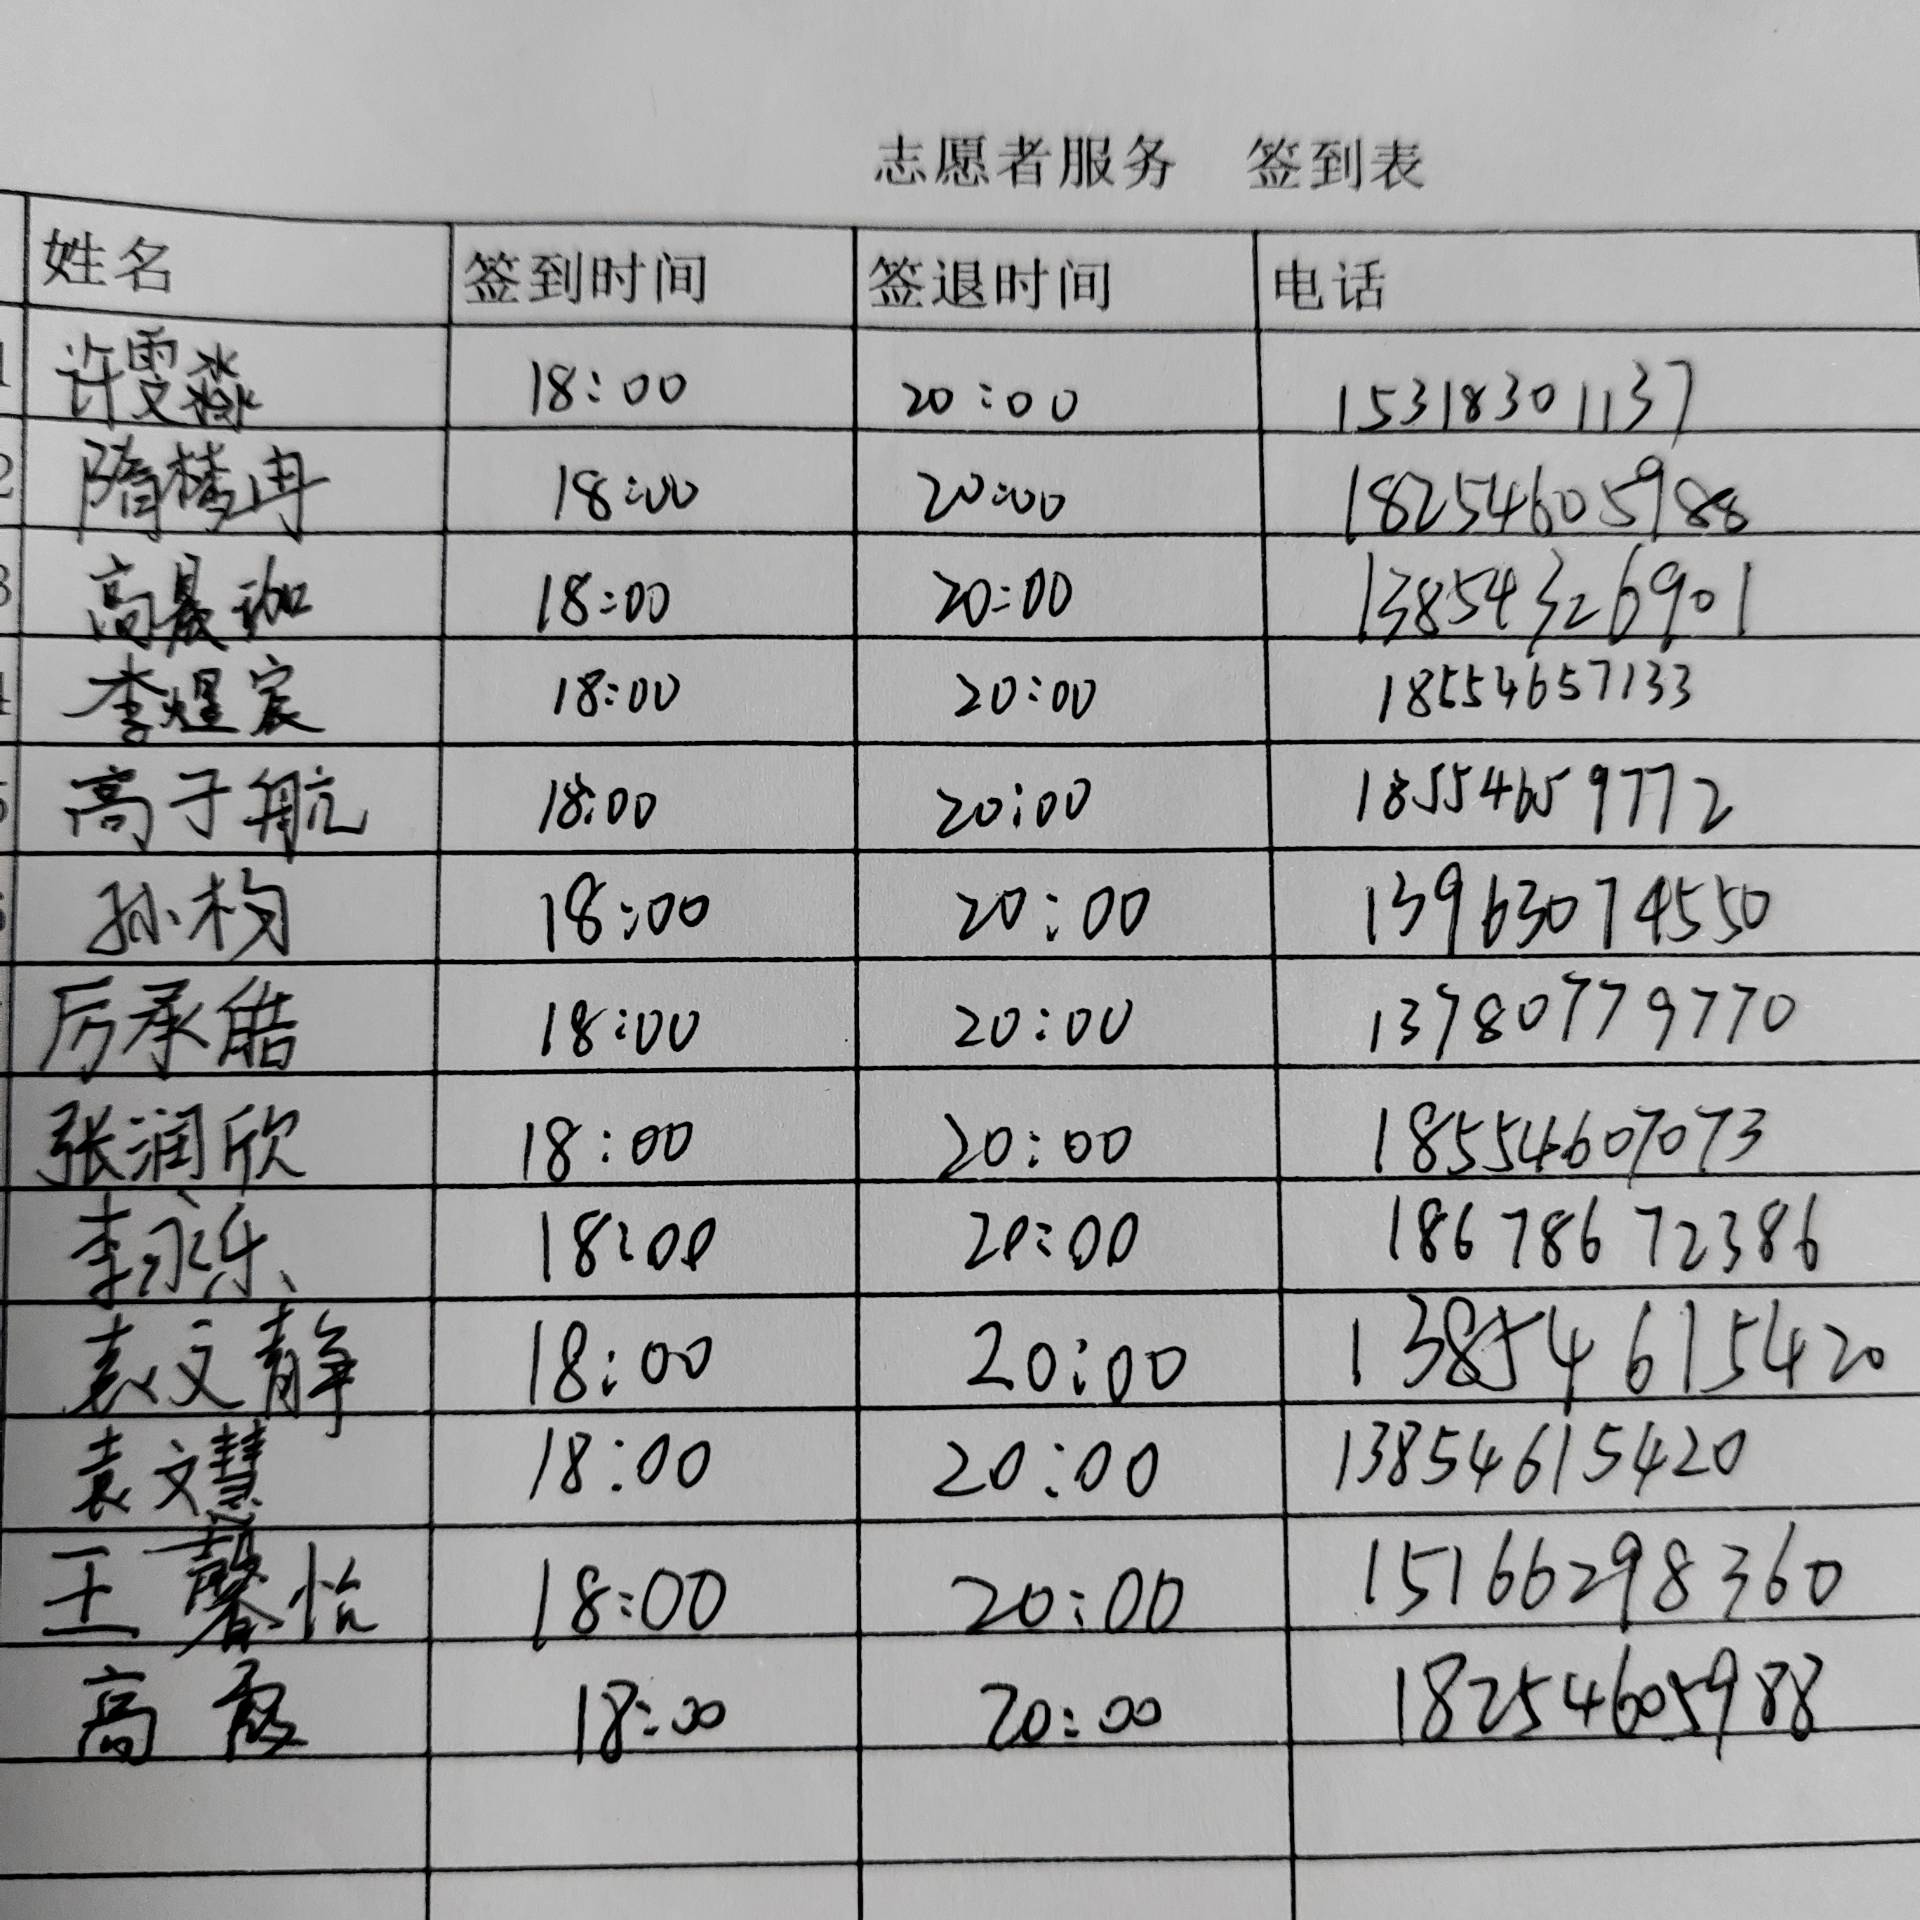 志愿者服务 签到表
姓名 签到时间 签退时间 电话
1 许雯淼 18:00 20:00 15318301137
2 隋梦冉 18:00 20:00 18254605988
3 高晟珈 18:00 20:00 13854326901
4 李煜宸 18:00 20:00 18554657133
5 高于航 18:00 20:00 18554659772
6 孙构 18:00 20:00 13963074550
厉承皓 18:00 20:00 13780779770
张润欣 18:00 20:00 18554607073
李永乐 18:00 20:00 18678672386
袁文静 18:00 20:00 13854615420
袁文慧 18:00 20:00 13854615420
王馨怡 18:00 20:00 15166298360
高霞 18:00 20:00 18254605988